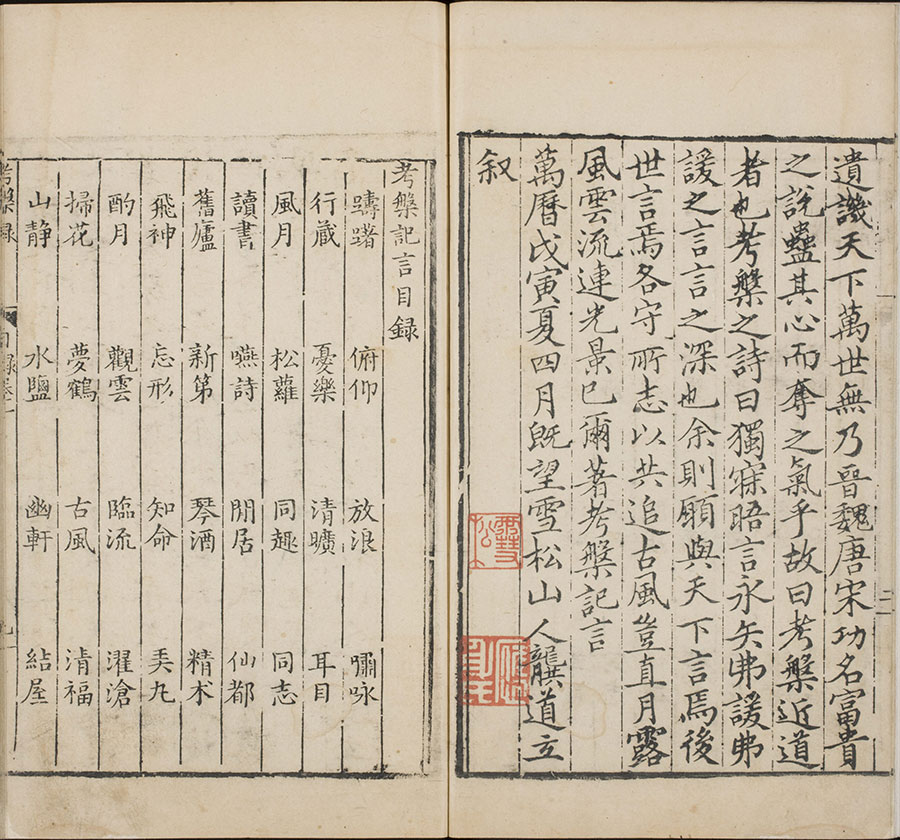 遺譏天下萬世無乃晉魏唐宋功名富貴
之說蠱其心而奪之氣乎故曰考槃近道
者也考槃之詩曰獨寐晤言永矢弗諼弗
諼之言言之深也余則願與天下言焉後
世言焉各守所志以共追古風豈直月露
風雲流連光景已爾著考槃記言
萬曆戊寅夏四月既望雪松山人龔道立
叙
考槃記言目録
躊躇 俯仰 放浪 嘯咏
行藏 憂樂 清曠 耳目
風月 松蘿 同趣 同志
讀書 嚥詩 閒居 仙都
舊廬 新第 琴酒 精术
飛神 忘形 知命 丸
酌月 觀雲 臨流 濯滄
掃花 夢鶴 古風 清福
山静 水鹽 幽軒 結屋
考槃録 目録卷一